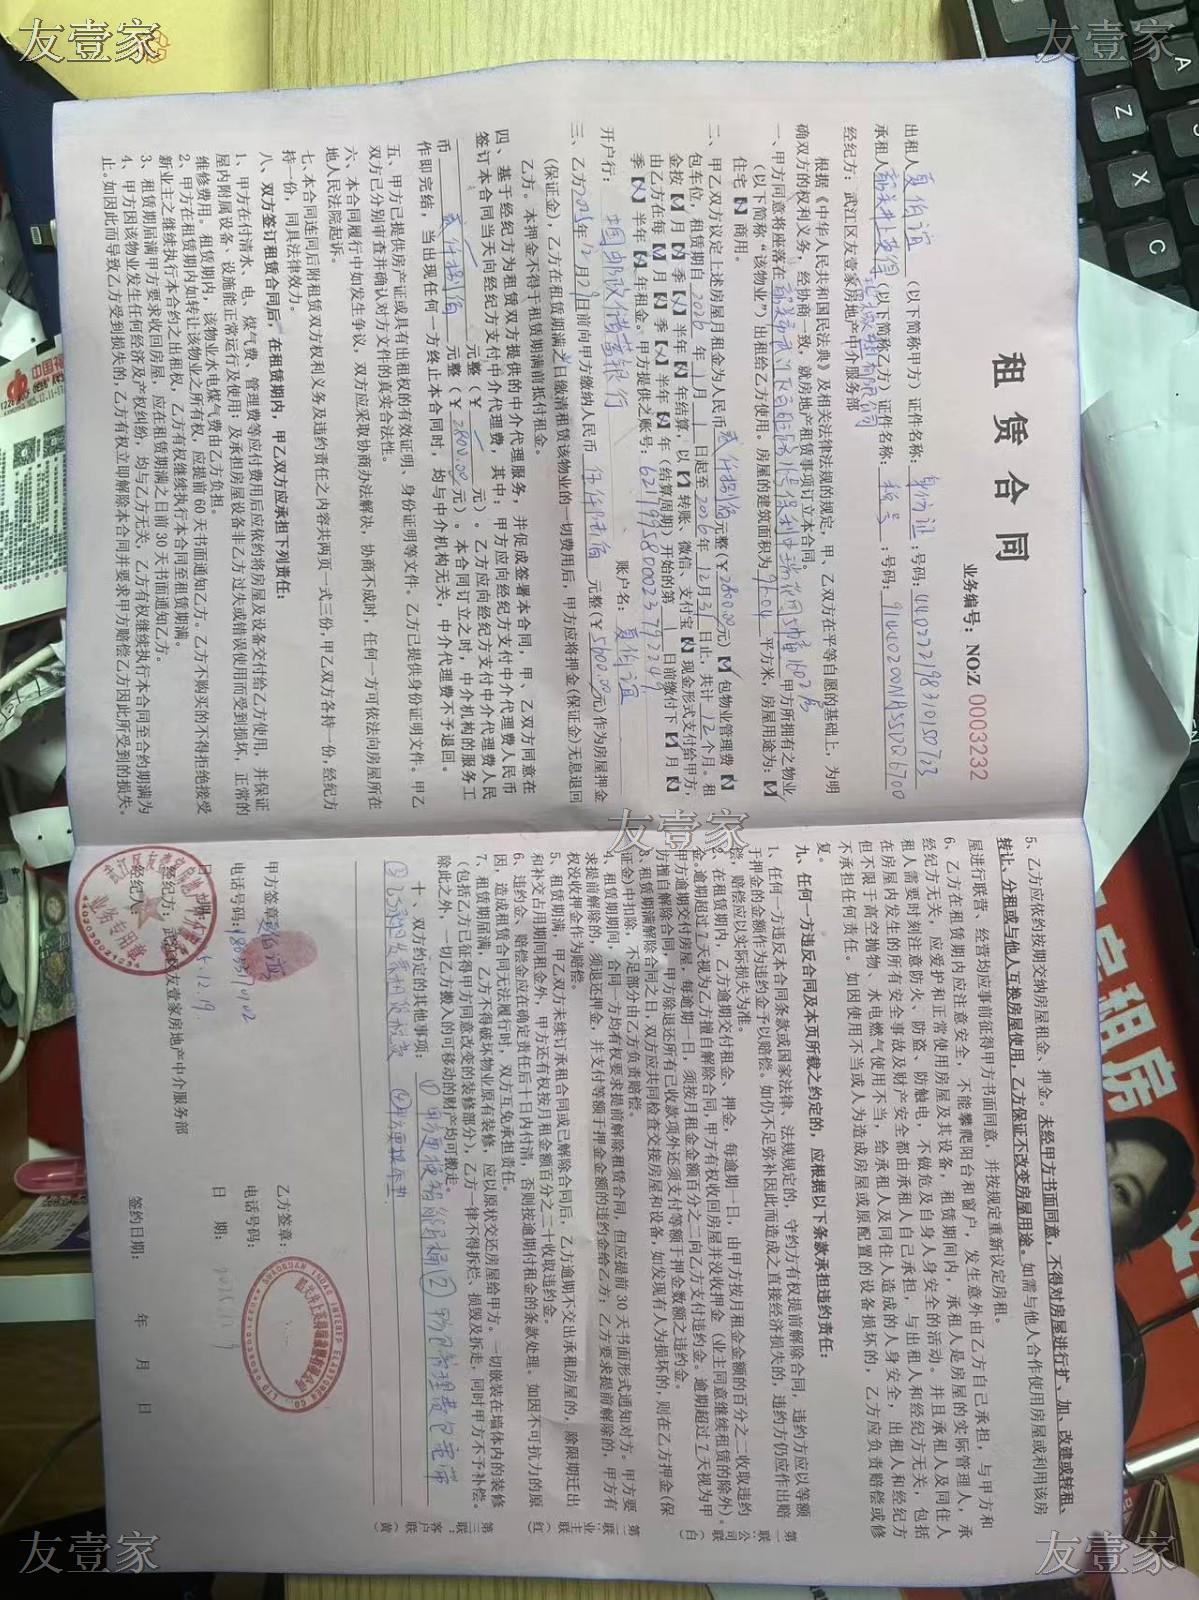 友壹家
友壹家
租赁合同
业务编号：NO:Z 0003232
出租人 （以下简称甲方）证件名称：身份证；号码：
承租人 （以下简称乙方）证件名称：税号；号码：
经纪方：武江区友壹家房地产中介服务部
根据《中华人民共和国民法典》及相关法律法规的规定，甲、乙双方在平等自愿的基础上，为明
确双方的权利义务，经协商一致，就房地产租赁事项订立本合同。
一、甲方同意将座落在 甲方所拥有之物业
（以下简称“该物业”）出租给乙方使用。房屋的建筑面积为 平方米，房屋用途为：
住宅 商用。
二、甲乙双方议定上述房屋月租金为人民币贰仟捌佰元整（￥2800.00元） 包物业管理费
包车位，租赁期自2026年1月1日起至2026年12月31日止，共计12个月。租
金按 月 季 半年 年结算，以 转账、微信、支付宝 现金形式支付给甲方，
由乙方在每 月 季 半年 年（结算周期）开始的第 日前缴付下 月
季 半年 年租金。甲方提供之账号：
开户行：中国邮政储蓄银行 账户名：
三、乙方2025年12月 日前向甲方缴纳人民币伍仟陆佰元整（￥5600.00元）作为房屋押金
（保证金），乙方在租赁期满之日缴清租赁该物业的一切费用后，甲方应将押金（保证金）无息退回
乙方。本押金不得于租赁期满前抵付租金。
四、基于经纪方为租赁双方提供的中介代理服务，并促成签署本合同，甲、乙双方同意在
签订本合同当天向经纪方支付中介代理费，其中：甲方应向经纪方支付中介代理费人民币
元整（￥ 元）。乙方应向经纪方支付中介代理费人民
币贰仟捌佰元整（￥2800.00元）。本合同订立之时，中介机构的服务工
作即完结，当出现任何一方终止本合同时，均与中介机构无关，中介代理费不予退回。
五、甲方已提供房产证或具有出租权的有效证明、身份证明等文件。乙方已提供身份证明文件。甲乙
双方已分别审查并确认对方文件的真实合法性。
六、本合同履行中如发生争议，双方应采取协商办法解决，协商不成时，任何一方可依法向房屋所在
地人民法院起诉。
七、本合同连同后附租赁双方权利义务及违约责任之内容共两页一式三份，甲乙双方各持一份，经纪方
持一份，同具法律效力。
八、双方签订租赁合同后，在租赁期内，甲乙双方应承担下列责任：
1、甲方在付清水、电、煤气费、管理费等应付费用后应依约将房屋及设备交付给乙方使用，并保证
屋内附属设备、设施能正常运行及使用；及承担房屋设备非乙方过失或错误使用而受到损坏，正常的
维修费用。租赁期内，该物业水电煤气费由乙方负担。
2、甲方在租赁期内如转让该物业之所有权，应提前60天书面通知乙方。乙方不购买的不得拒绝接受
新业主之继续执行本合约之出租权，乙方有权继续执行本合同至租赁期满。
3、租赁期届满甲方要求收回房屋，应在租赁期满之日前30天书面通知乙方。
4、甲方因该物业发生任何经济及产权纠纷，均与乙方无关，乙方有权继续执行本合同至合约期满为
止。如因此而导致乙方受到损失的，乙方有权立即解除本合同并要求甲方赔偿乙方因此所受到的损失。
友壹家
5、乙方应依约按期交纳房屋租金、押金。未经甲方书面同意，不得对房屋进行扩、加、改建或转租、
转让、分租或与他人互换房屋使用，乙方保证不改变房屋用途。如需与他人合作使用房屋或利用该房
屋进行联营、经营均应事前征得甲方书面同意，并按规定重新议定房租。
6、乙方在租赁期内应注意安全，不能攀爬阳台和窗户，发生意外由乙方自己承担，与甲方和
经纪方无关，应爱护和正常使用房屋及其设备，租赁期间内，承租人是房屋的实际管理人，承
租人需要时刻注意防火、防盗、防触电，不做危及自身人身安全的活动。并且承租人及同住人
在房屋内发生的所有安全事故及财产安全都由承租人自己承担，与出租人和经纪方无关，包括
但不限于高空抛物、水电燃气使用不当，给承租人及同住人造成的人身安全，出租人和经纪方
不承担任何责任。如因使用不当或人为造成房屋或原配置的设备损坏的，乙方应负责赔偿或修
复。
九、任何一方违反合同及本页所载之约定的，应根据以下条款承担违约责任：
1、任何一方违反本合同条款或国家法律、法规规定的，守约方有权提前解除合同，违约方应以等额
于押金的金额作为违约金予以赔偿。如仍不足弥补因此而造成之直接经济损失的，违约方仍应作出赔
偿，赔偿应以实际损失为准。
2、在租赁期内，乙方逾期交付租金、押金，每逾期一日，由甲方按月租金金额的百分之二收取违约
金。逾期超过7天视为乙方擅自解除合同，甲方有权收回房屋并没收押金（业主同意继续租赁的除外）。
甲方逾期交付房屋，每逾期一日，须按月租金金额百分之二向乙方支付违约金。逾期超过7天视为甲
方擅自解除合同，甲方除退还所有已收款项外还须支付等额于押金数额之违约金。
3、租赁期满解除合同之日，双方应共同检查交接房屋和设备，如发现有人为损坏的，则在乙方押金（保
证金）中扣除，不足部分由乙方负责赔偿。
4、租赁期间，合同一方均有权要求提前解除租赁合同，但应提前30天书面形式通知对方。甲方要
求提前解除的，须退还押金，并支付等额于押金金额的违约金给乙方；乙方要求提前解除的，甲方有
权没收押金作为赔偿。
5、租赁期满，甲乙双方未续订承租合同或已解除合同后，乙方逾期不交出承租房屋的，除限期迁出
和补交占用期间租金外，甲方还有权按月租金额百分之二十收取违约金。
6、违约金、赔偿金应在确定责任后十日内付清，否则按逾期付租金的条款处理。如因不可抗力的原
因，造成租赁合同无法履行时，双方互免承担责任。
7、租赁期届满，乙方不得破坏物业原有装修，应以原状交还房屋给甲方。一切嵌装在墙体内的装修
（包括乙方已征得甲方同意改变的装修部分），乙方一律不得拆烂、损毁及拆走，同时甲方不予补偿。
除此之外，一切乙方搬入的可移动的财产均可搬走。
十、双方约定的其他事项：
甲方签章：
电话号码：
日 期：
经纪方：武江区友壹家房地产中介服务部
经纪人：
乙方签章：
电话号码：
日 期：
签约日期： 年 月 日
第一联：公司联（白）
第二联：业主联（红）
第三联：客户联（黄）
业务专用章
Z
A
友壹家
友壹家